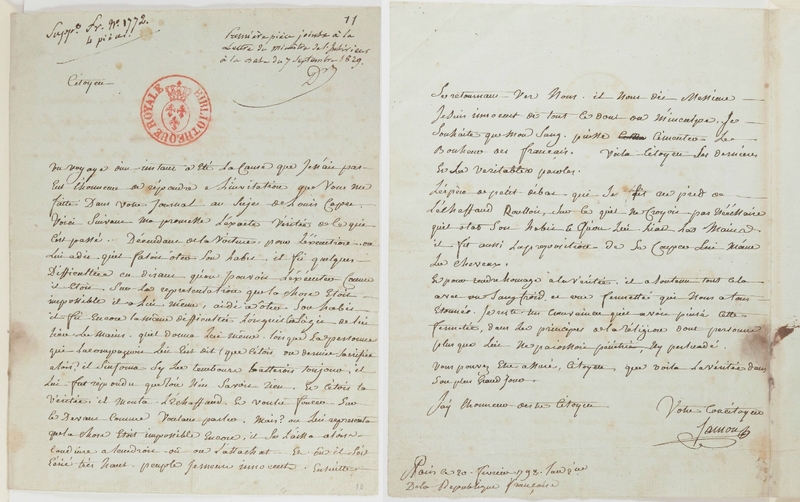 Supp.t Fr. n.o 1772.
4 pièces.
11
Première pièce jointe à la
Lettre du Ministre de l'Intérieur
à la date du 7 Septembre 1829.
Citoyen
BIBLIOTHEQUE ROYALE
un voyage d'un instant a été la cause que je n'ai pas
eut l'honneur de répondre a l'invitation que vous me
faite Dans votre Journal au sujet de Louis Capet.
Voici Suivant ma promesse l'exacte Véritée de ce qui
c'est passé. Descendant de la Voiture pour l'exécution on
lui a dit qu'il faloit oter son habit, il fit quelques
Difficultées en disant qu'on pouvoit l'exécuter comme
il étoit. Sur la représentation que la chose étoit
impossible il a lui même aidé a oter son habit.
il fit encore la même difficultée lorsqu'il s'agit de lui
lier les mains. qu'il donna lui même lorsque la personne
qui l'accompagnoit lui eut dit que c'étoit un dernier sacrifice
alors? il s'informa sy les tembours batteroit toujour, il
lui fut répondu que l'on n'en savoit rien. Et c'étoit la
Véritée, il monta l'échaffaud Et voulu foncer sur
le Devant comme voulant parler. Mais? on lui représenta
que la chose étoit impossible encore, il se laissa alors
conduire a l'endroit où on l'attachat Et où il s'est
écrié très haut. peuple je meurs innocent. Ensuitte
Se retournant Ver Nous. il Nous dit Messieur
Je suis innocent de tout ce dont on m'inculpe. Je
souhaite que mon Sang puisse cimenter le
Bonheur des français. Voila Citoyen Ses dernières
Et Ses Véritables paroles.
L'espèce de petit débat qui Se fit au pied de
L'échaffaud Roulloit, sur ce qu'il ne Croyoit pas Nécéssaire
qu'il otat Son habit Et Qu'on Lui liat Les Mains.
il fit aussi La proposition de Se Couper Lui Même
Les cheveux.
Et pour rendre homage a la Véritée, il a soutenu tout cela
avec un Sang froid et une fermettée qui Nous a tous
Etonnés. Je reste très Convaincu qu'il avoit puisé cette
fermetée, dans les principes de la Religion dont personne
plus que Lui Ne paroissoit pénétrée Ny persuadé.
Vous pouvez être assuré, Citoyen, que voila La Véritée dans
Son plus Grand jour.
J'ay L'honneur d'estre Citoyen
Votre Concitoyen
Samson
Paris ce 20 fevrier 1793. L'an 2e
De la République française